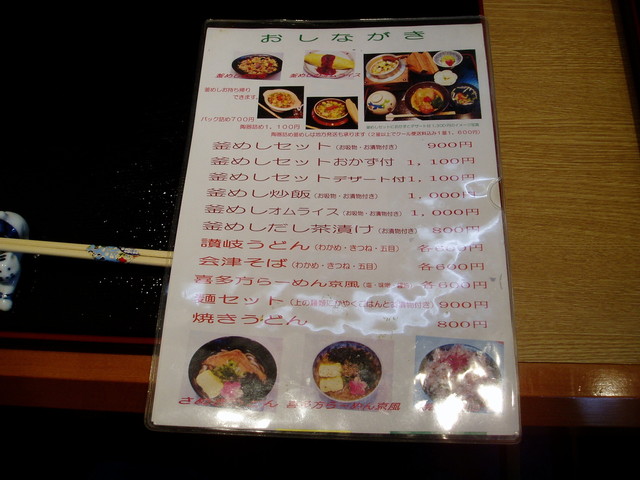 おしながき
釜めし
釜めしの持ち帰り
できます。
パック詰め700円
陶器詰め1,100円
釜めしセット(お吸物・お漬物付き) 900円
釜めしセットおかず付 1,100円
釜めしセットデザート付 1,100円
釜めし炒飯(お吸物・お漬物付き) 1,000円
釜めしオムライス(お吸物・お漬物付き) 1,000円
釜めしだし茶漬け(お漬物付き) 800円
讃岐うどん(わかめ・きつね・五目) 各600円
会津そば(わかめ・きつね・五目) 各600円
喜多方らーめん京風 各600円
麺セット 900円
焼きうどん 800円
喜多方らーめん京風